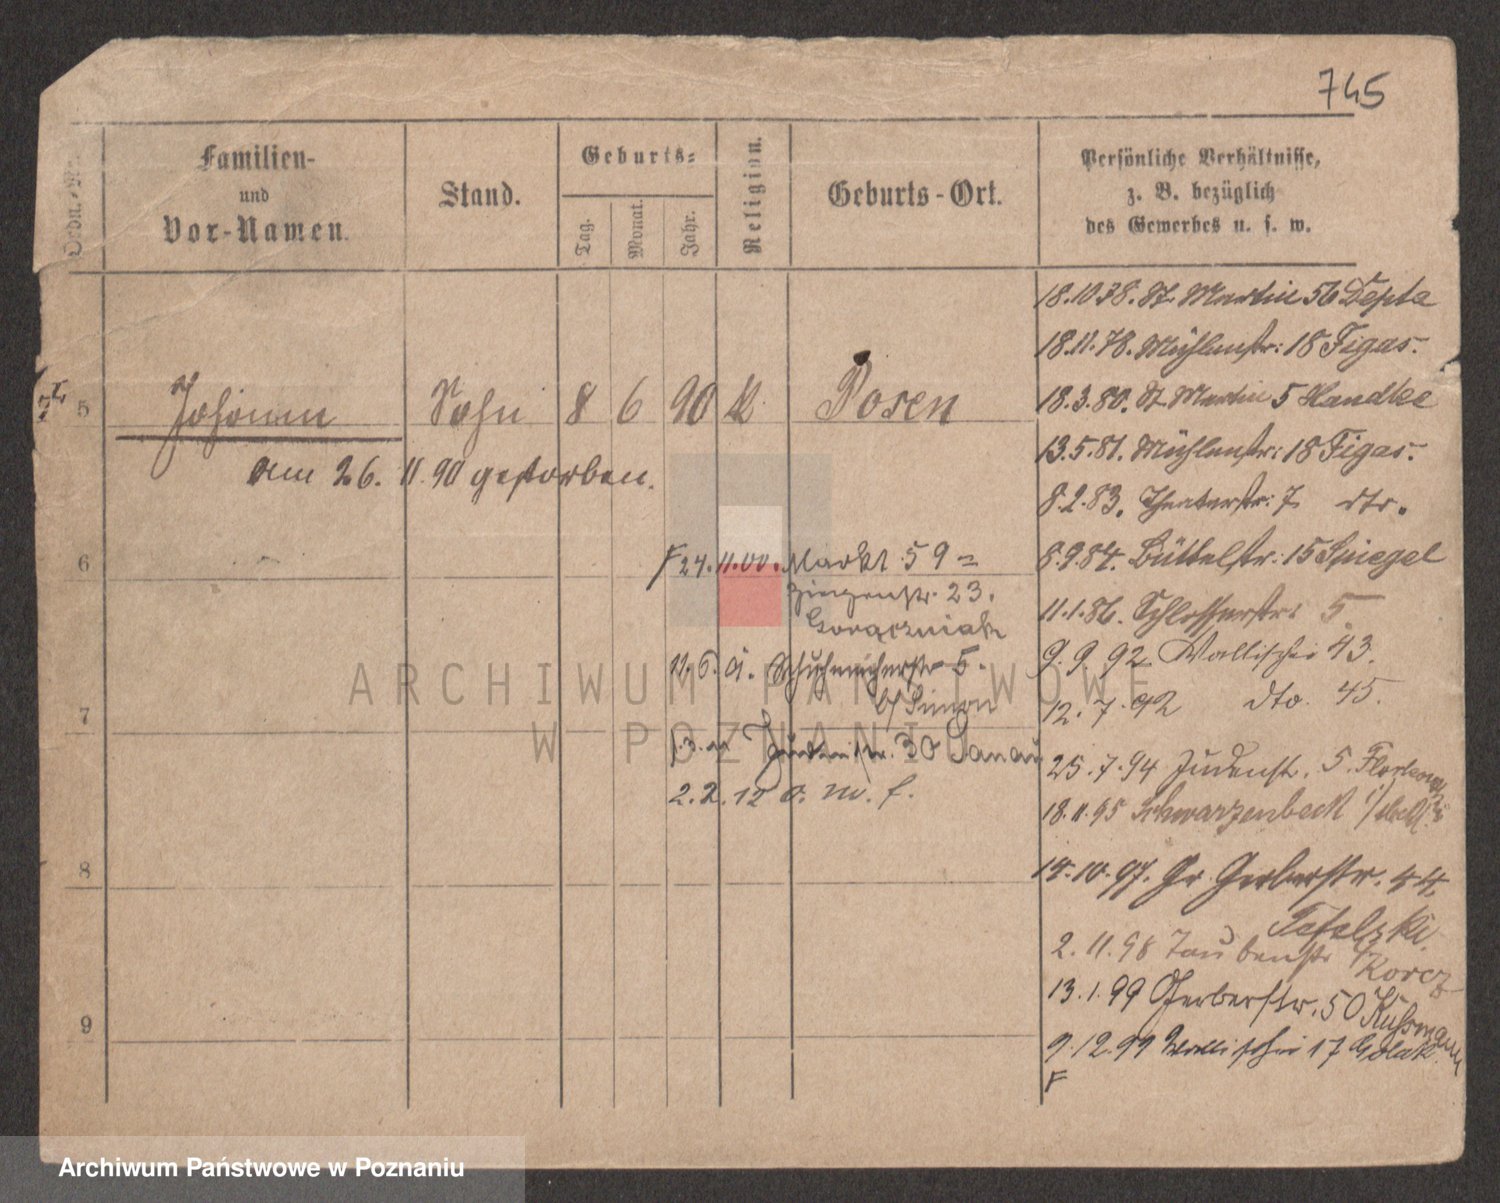 745
Ordn.-Nr.
Familien-
und
Vor-Namen.
Stand.
Geburts-
Tag.
Monat.
Jahr.
Religion.
Geburts-Ort.
Persönliche Verhältnisse,
z. B. bezüglich
des Gewerbes u. s. w.
5 Johann Sohn 8 6 90 k Posen
am 26. 11. 90 gestorben.
6
7
8
9
18.10.78. St. Martin 56 Depta
18.11.78. Mühlenstr: 18 Figas.
18.3.80. St. Martin 5 Handke
13.5.81. Mühlenstr: 18 Figas.
8.2.83. Theaterstr: 7 dto.
8.9.84. Büttelstr: 15 Spiegel
11.1.86. Schlosserstr: 5.
9.9.92 Wallischei 43.
12.7.92 dto. 45.
25.7.94 Judenstr. 5.
18.11.95 Schwarzenbeck
14.10.97. Gr. Gerberstr. 44.
Tafelski.
2.11.98 Taubenstr Korcz
13.1.99 Gerberstr. 50 Kußmann
9.12.99 Wallischei 17
F
F 24.11.00. Markt 59 =
Ziegenstr. 23.
Goraczniak
Schuhmacherstr 5.
b/ Simon
Judenstr. 30 Danau
2.2.12 o. m. f.
ARCHIWUM PAŃSTWOWE
W POZNANIU
Archiwum Państwowe w Poznaniu